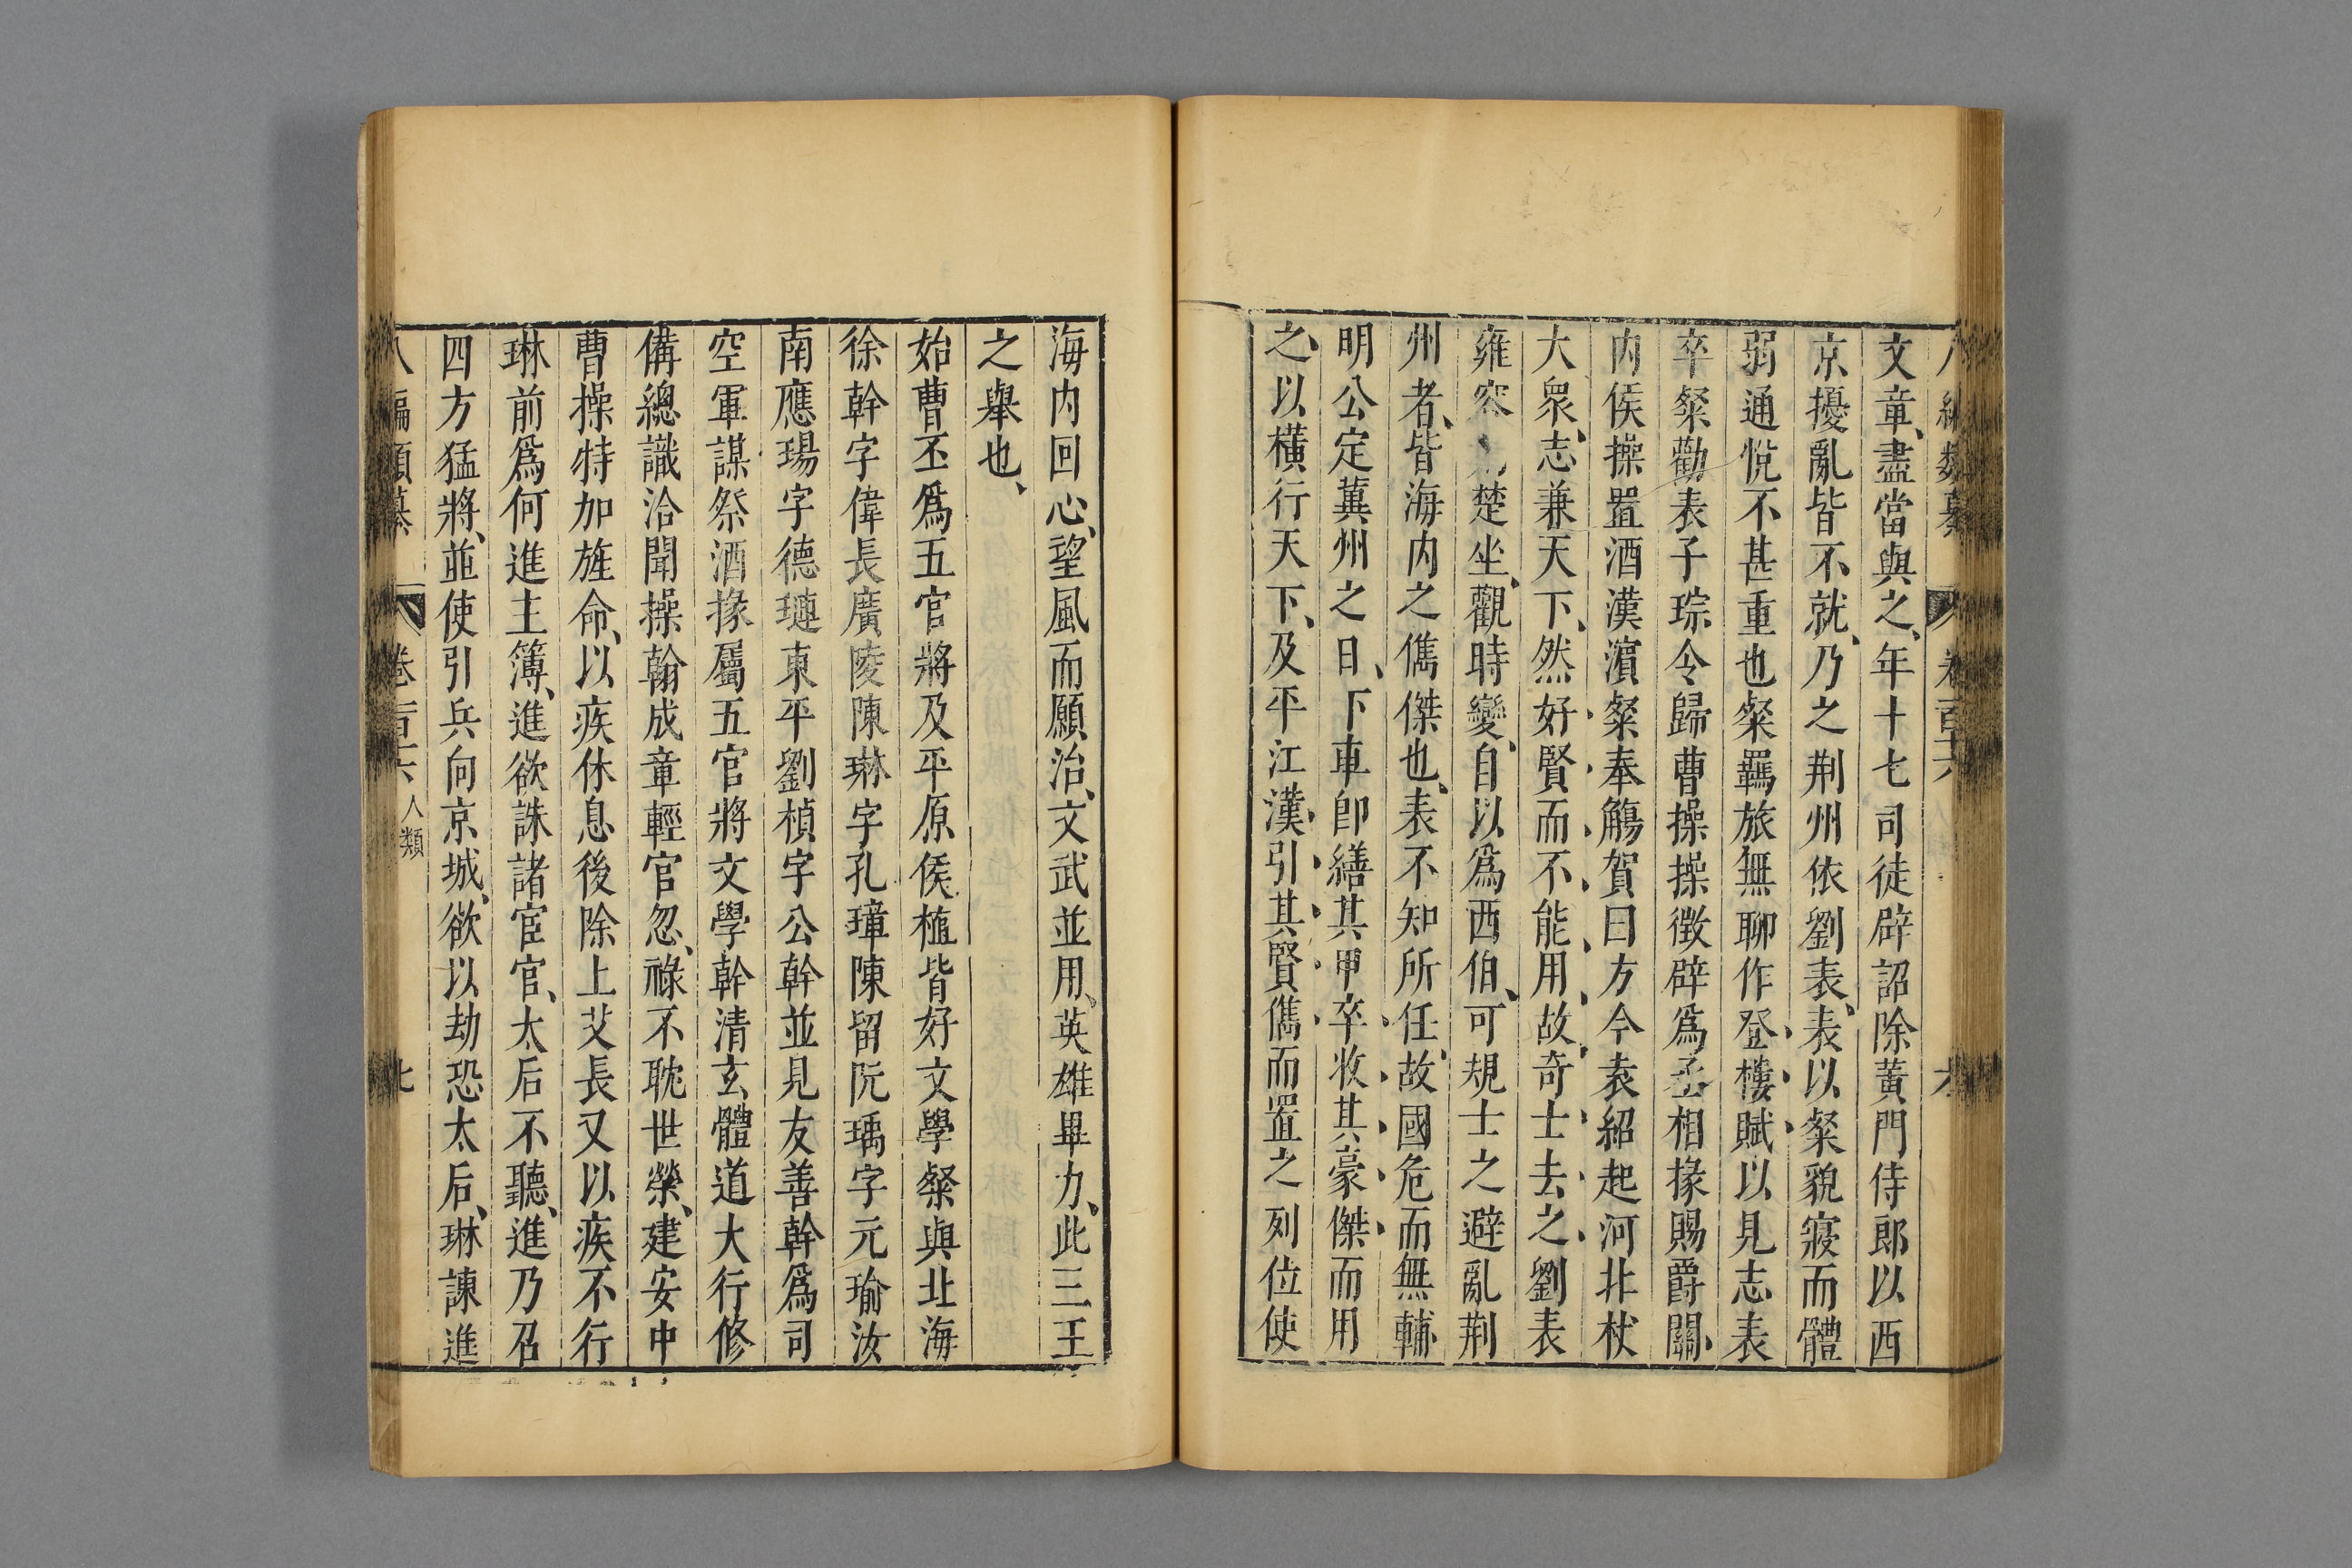 文章、盡當與之、年十七司徒辟詔除黃門侍郎以西
京擾亂皆不就、乃之荆州依劉表、表以粲貌寢而體
弱通悅不甚重也粲羈旅無聊作登樓賦以見志表
卒粲勸表子琮令歸曹操操徵辟爲丞相掾賜爵關
内侯操置酒漢濵粲奉觴賀曰方今袁紹起河北杖
大衆、志兼天下、然好賢而不能用、故奇士去之、劉表
雍容楚坐、觀時變、自以爲西伯、可規士之避亂荆
州者、皆海内之儁傑也、表不知所任、故國危而無輔、
明公定冀州之日、下車卽繕其甲卒收其豪傑而用
之、以橫行天下、及平江漢、引其賢儁而置之列位使
海内回心、望風而願治、文武並用、英雄畢力、此三王
之舉也、
始曹丕爲五官將及平原侯植皆好文學粲與北海
徐幹字偉長廣陵陳琳字孔璋陳留阮瑀字元瑜汝
南應瑒字德璉東平劉楨字公幹並見友善幹爲司
空軍謀祭酒掾屬五官將文學幹清玄體道大行修
備總識洽聞操翰成章輕官忽、祿不耽世榮、建安中
曹操特加旌命、以疾休息後除上艾長又以疾不行
琳前爲何進主簿、進欲誅諸宦官、太后不聽、進乃召
四方猛將、並使引兵向京城、欲以劫恐太后、琳諫進
編類 卷一百六 人類